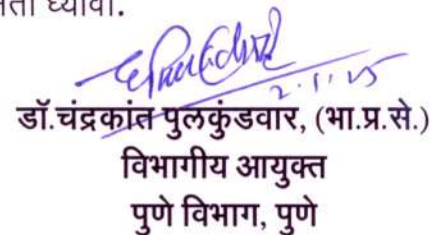 घ्यावा.
2.1.25
डॉ.चंद्रकांत पुलकुंडवार, (भा.प्र.से.)
विभागीय आयुक्त
पुणे विभाग, पुणे